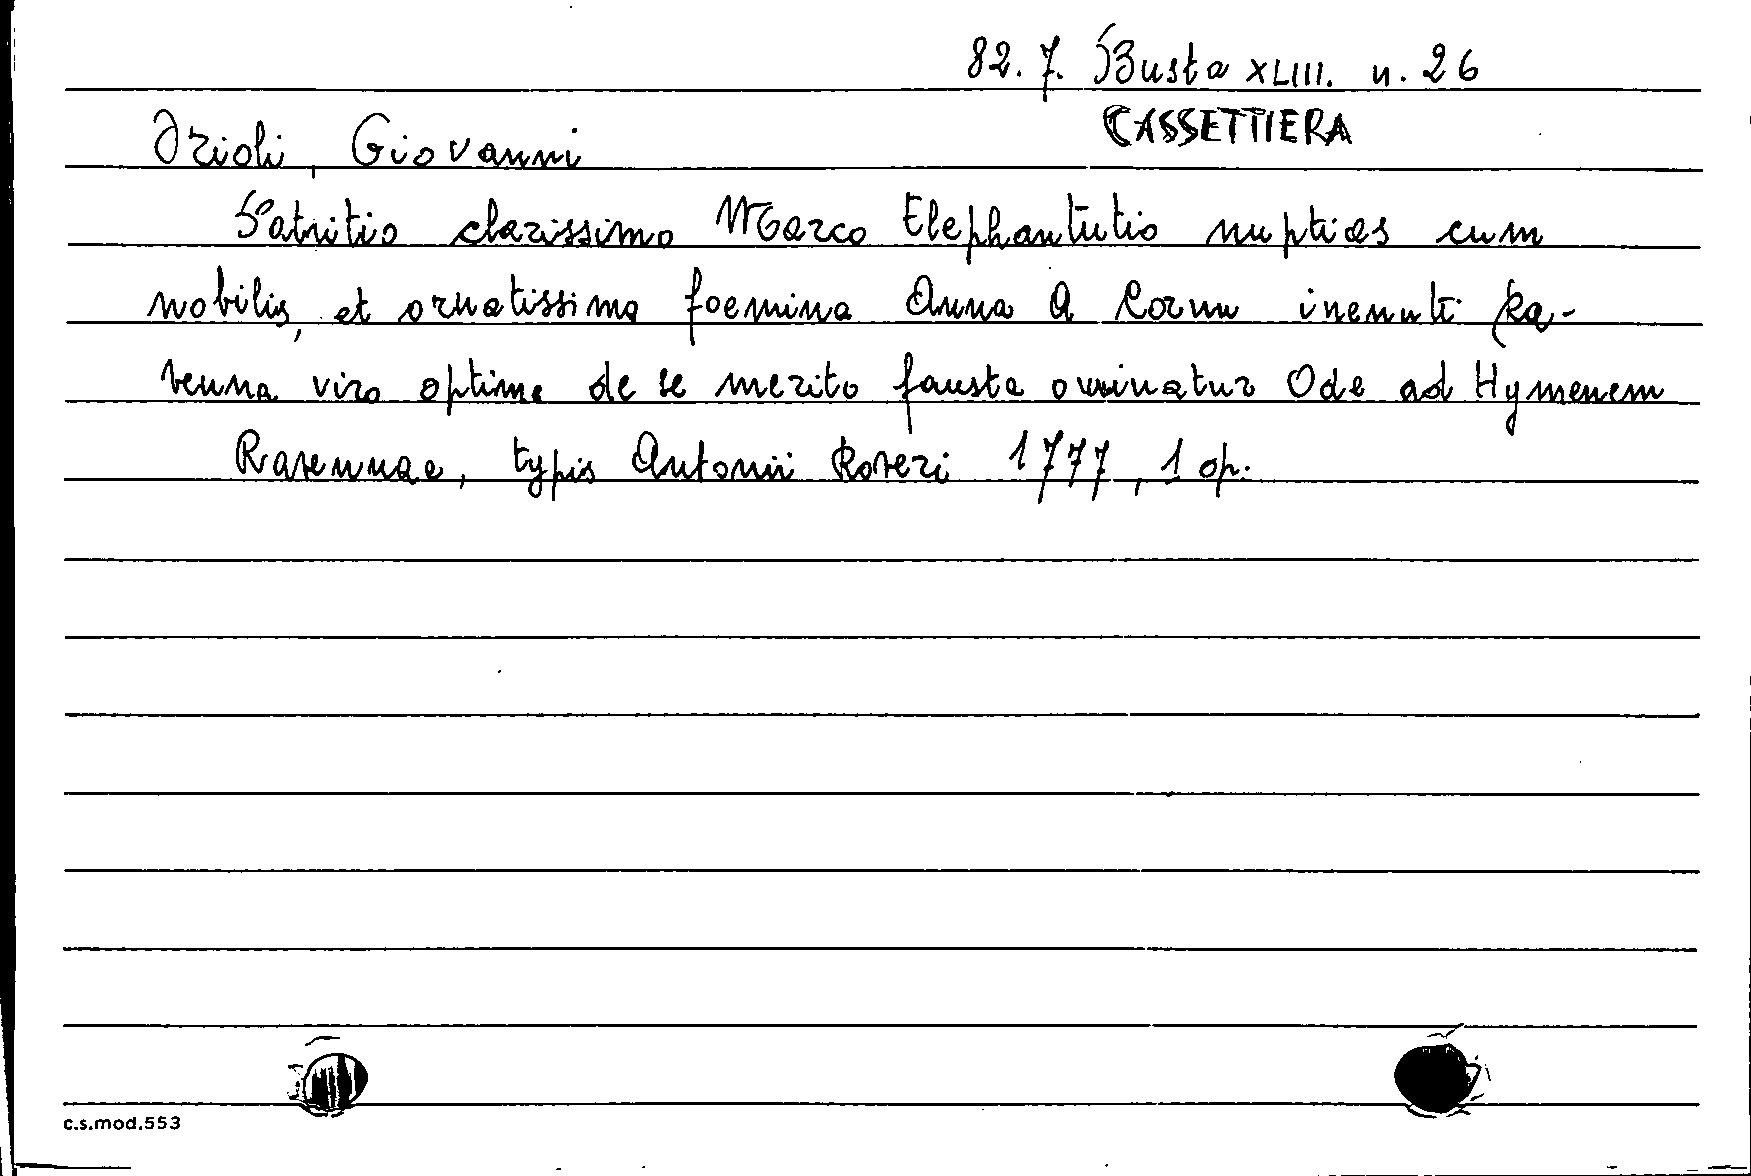 82.7. Busta XLIII. n. 26
CASSETTIERA
Orioli, Giovanni
Patritio clarissimo Marco Elephantutio nuptias cum
nobilis, et ornatissima foemina Anna A Cornu inenuti Ra-
venna viro optime de se merito fausta ominatur Ode ad Hymenem
Ravennae, typis Antonii Roveri 1777, 1 op.
c.s.mod.553